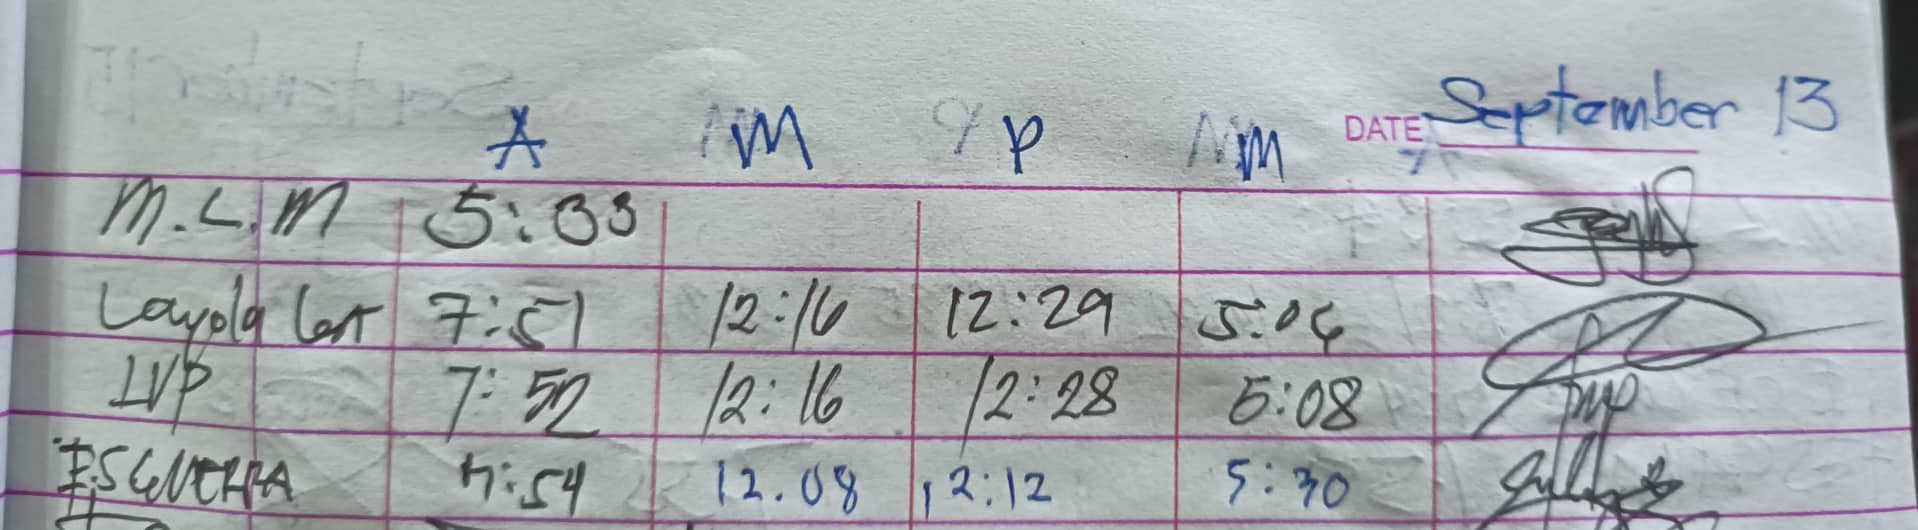 DATE September 13
A M P M
M.L.M 5:33
Loyola 7:51 12:16 12:29 5:06
LVP 7:52 12:16 12:28 5:08
ESGUERRA 7:54 12.08 12:12 5:30